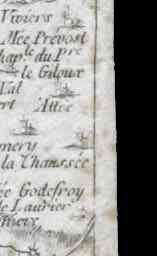 Viviers
Mée Prevost
hapˡᵉ du Pʳᵉ
le Giloux
Val
rt Attée
mery
la Chaussée
ée Godefroy
le Laurier